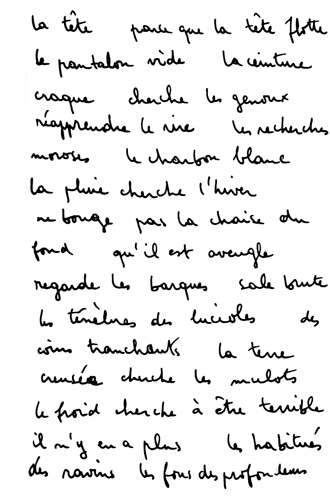 la tête parce que la tête flotte
le pantalon vide la ceinture
craque cherche les genoux
réapprendre le rire les recherches
moroses le charbon blanc
la pluie cherche l'hiver
ne bouge pas la chaise du
fond qu'il est aveugle
regarde les barques sale brute
les ténèbres des lucioles des
coins tranchants la terre
creusée cherche les mulots
le froid cherche à être terrible
il n'y en a plus les habitués
des ravins les fous des profondeurs